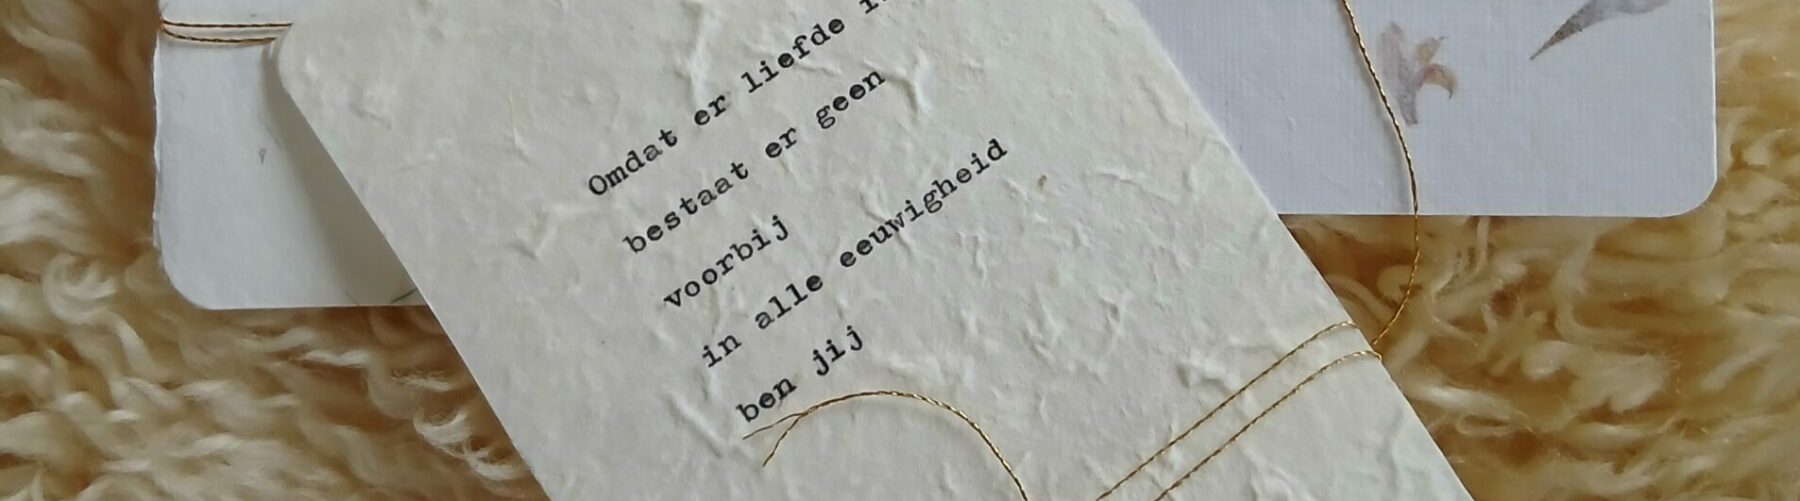 Omdat er liefde
bestaat er geen
voorbij
in alle eeuwigheid
ben jij